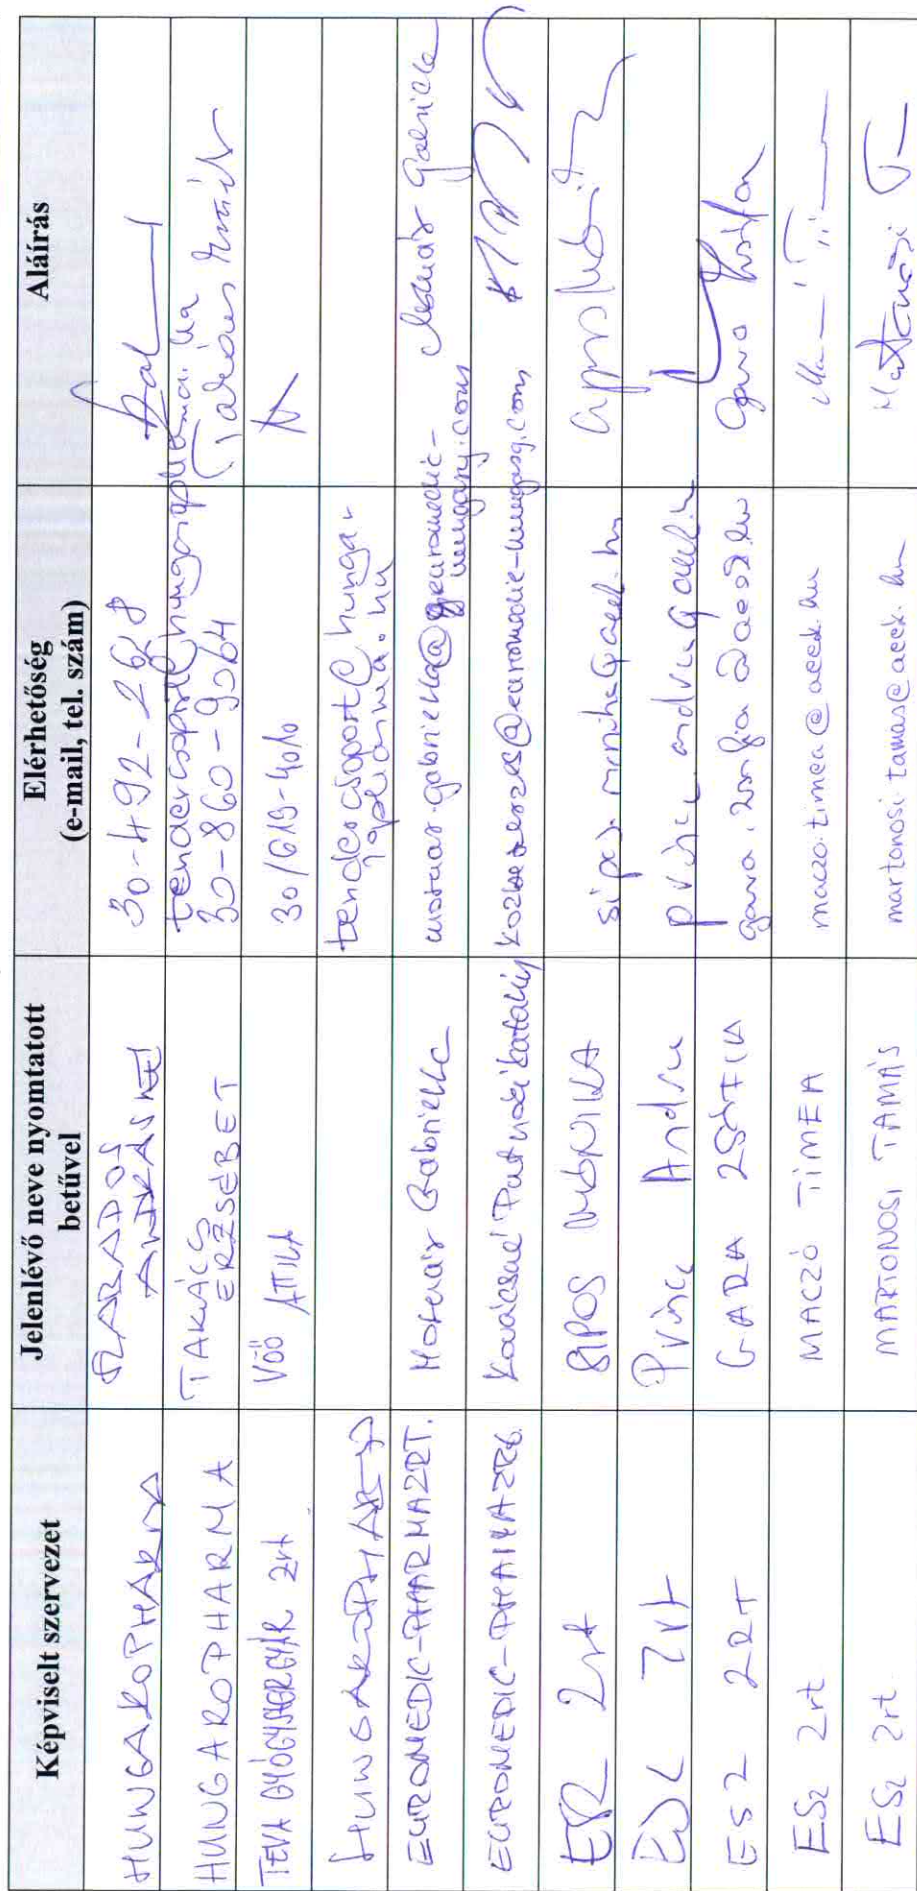 Képviselt szervezet
Jelenlévő neve nyomtatott
betűvel
Elérhetőség
(e-mail, tel. szám)
Aláírás
HUNGAROPHARMA
ANDRÁSNÉ
30-492-268
HUNGAROPHARMA
TAKÁCS
ERZSÉBET
30-860-9064
Takács
TEVA GYÓGYSZERGYÁR Zrt
Vöő ATTILA
30/619-4010
HUNGAROPHARMA
tendercsoport@hungar
opharma.hu
EUROMEDIC-PHARMA ZRT.
Molnár Gabriella
molnar.gabriella@euromedic-
hungary.com
Molnár Gabriella
EUROMEDIC-PHARMA ZRt.
Kovácsné Putnoki Katalin
kozbeszerzes@euromedic-hungary.com
ESZ Zrt
SIPOS MÓNIKA
sipos.monika@aeek.hu
ESZ Zrt
ESZ ZRT
GARA ZSÓFIA
gara.zsofia@aeek.hu
Gara Zsófia
ESZ Zrt
MACZÓ TÍMEA
maczo.timea@aeek.hu
ESZ Zrt
MARTONOSI TAMÁS
martonosi.tamas@aeek.hu
Martonosi T